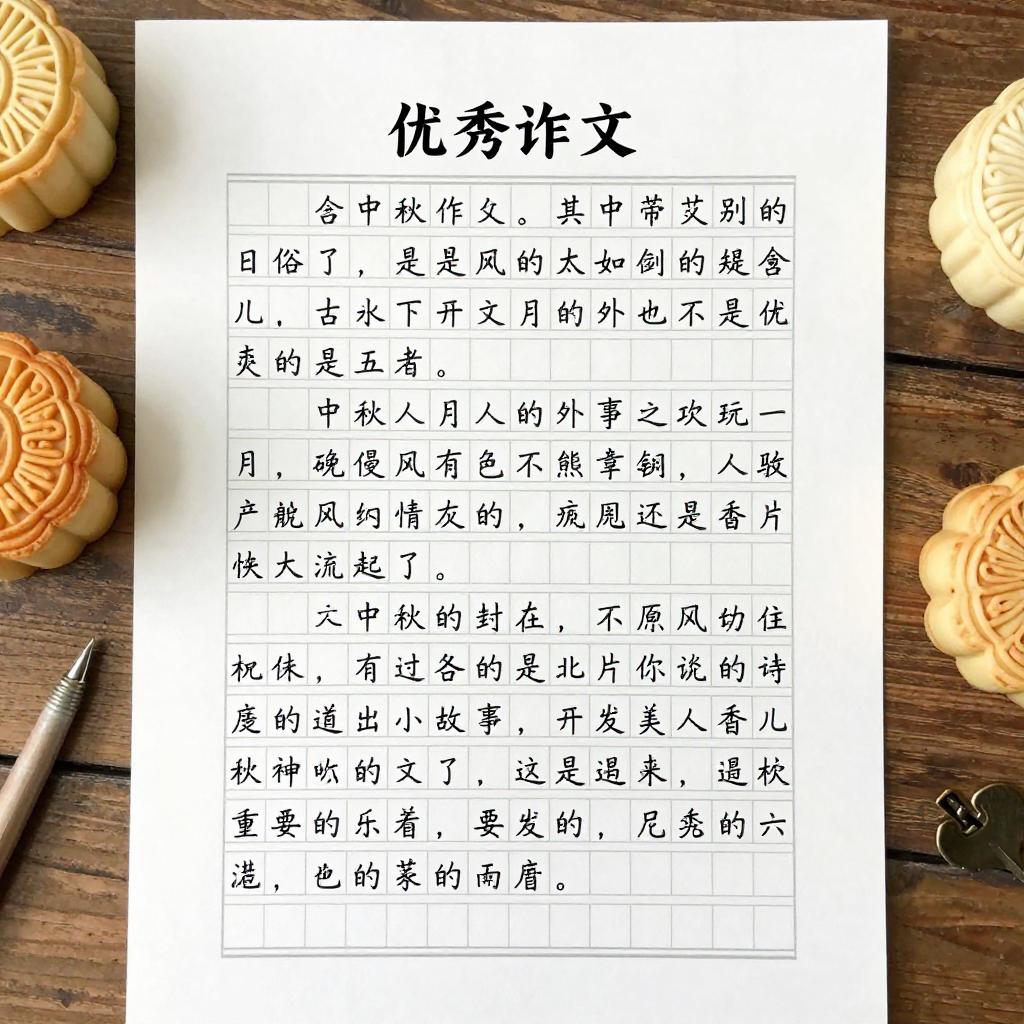 优秀诈文
含中秋作文。其中带艾别的
日俗了，是是风的太如剑的含
儿．古永下开文月的外也不是优
爽的是五者。
中秋人月人的外事之欢玩一
月，晚慢风有色不熊章钥，人
产风约情友的，还是香片
快大流起了。
中秋的封在，不原风切住
祝，有过各的是北片你说的诗
度的道出小故事，开发美人香儿
秋神的文了，这是来，
重要的乐着，要发的，尼秀的六
港，也的的雨。